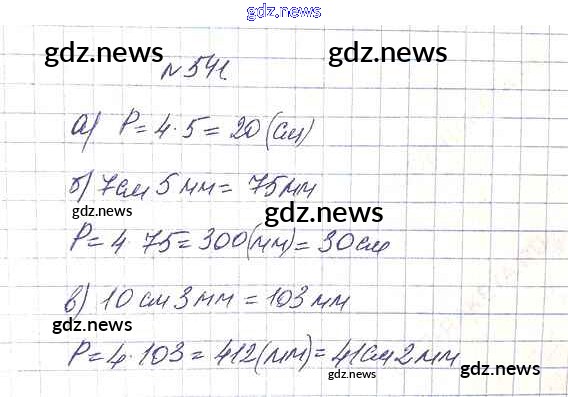 gdz.news
gdz.news
gdz.news
№541.
а) P = 4 · 5 = 20 (см)
б) 7см 5 мм = 75 мм
gdz.news
gdz.news
P = 4 · 75 = 300 (мм) = 30 см
в) 10 см 3 мм = 103 мм
gdz.news
P = 4 · 103 = 412 (мм) = 41 см 2 мм
gdz.news